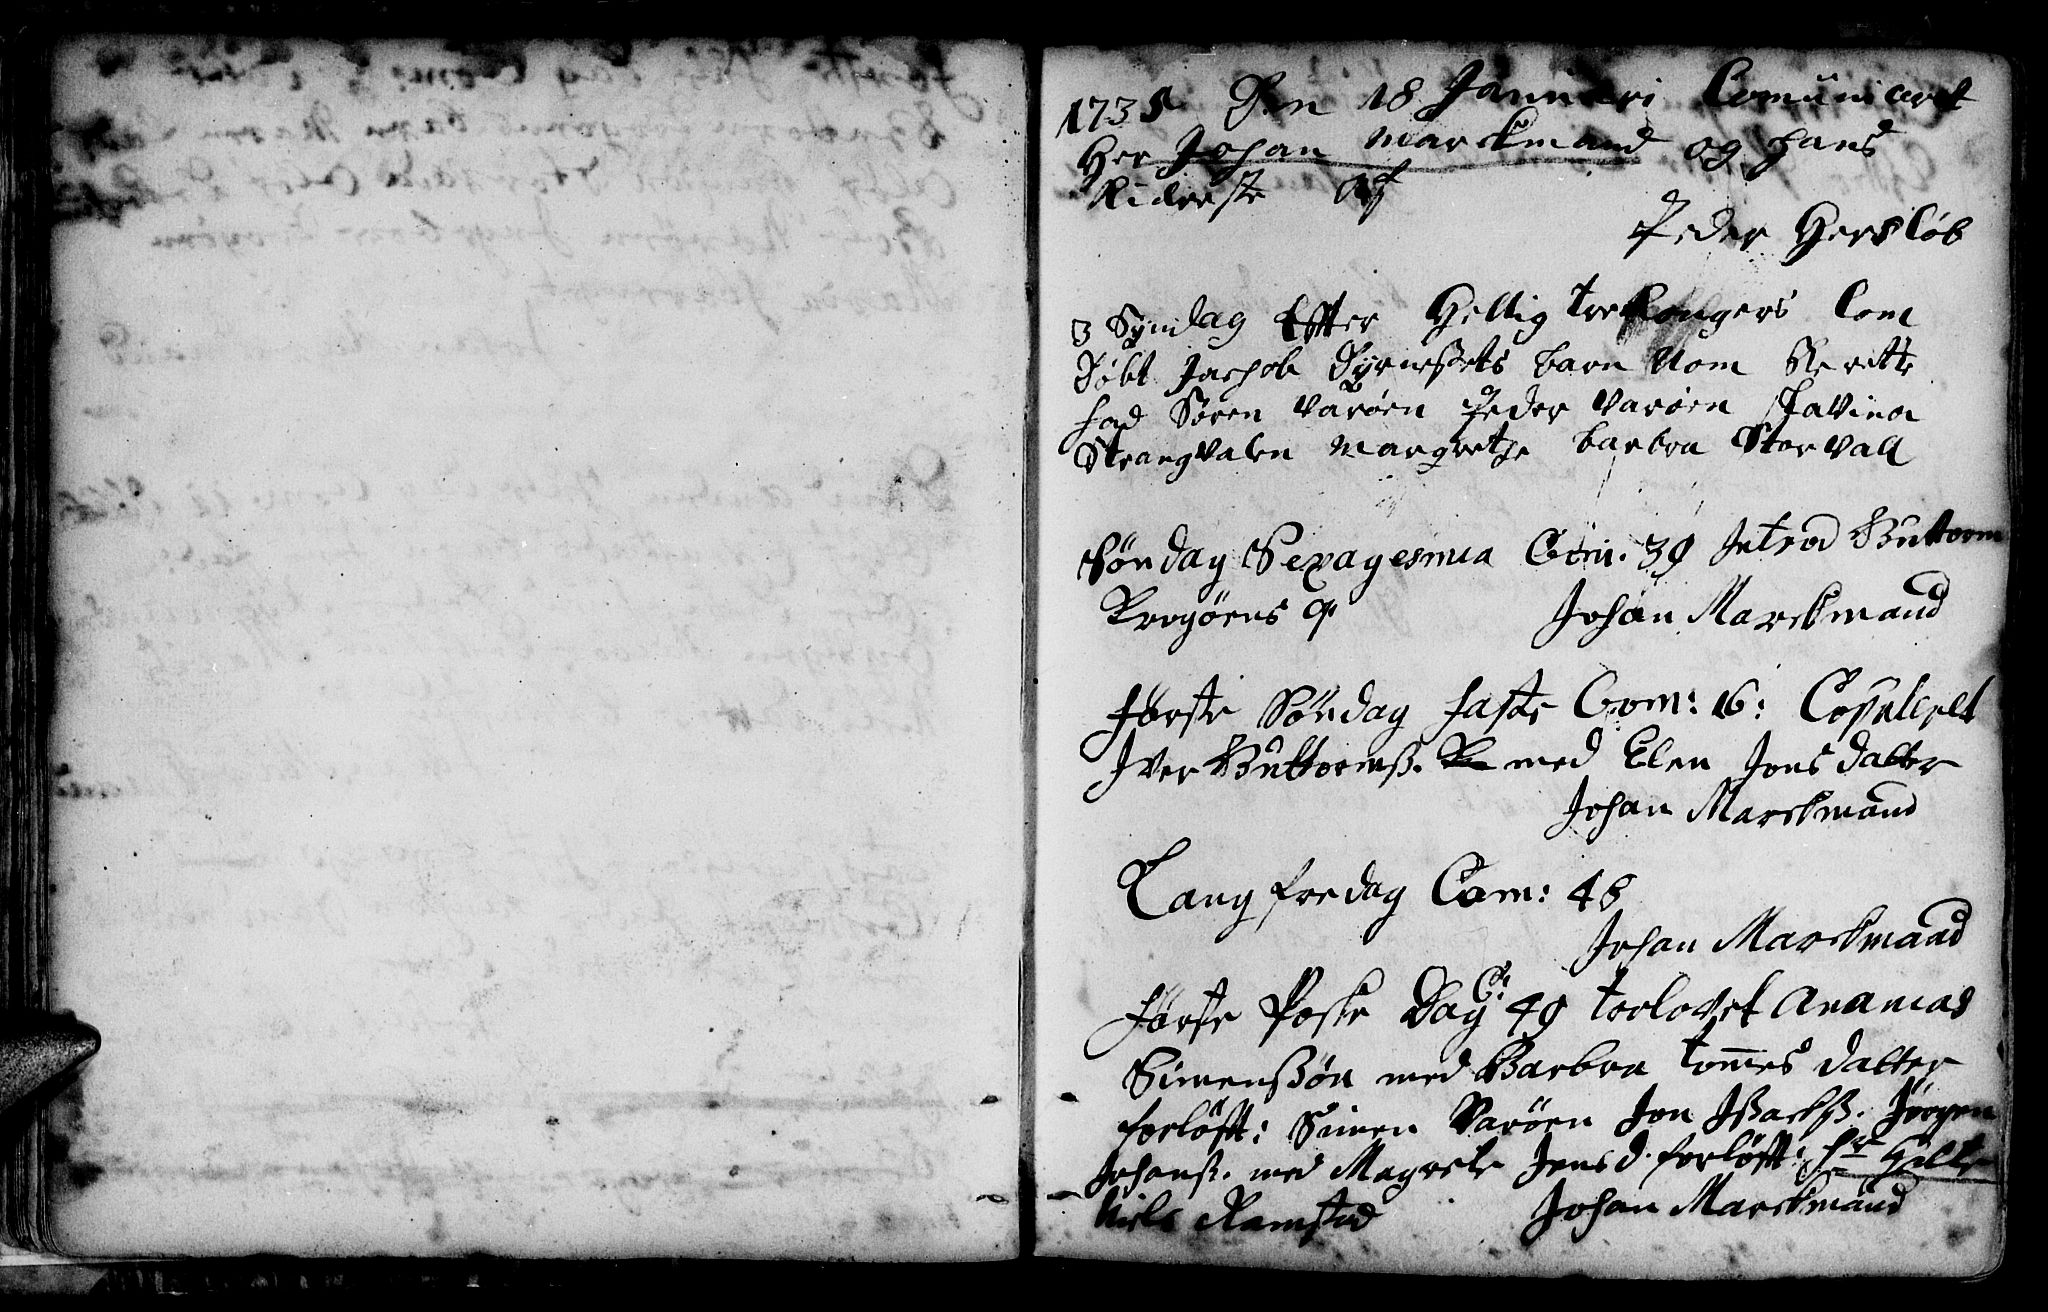 1735 Den 18 Januari Comuniceret
Her Johan Marckmand og hans
Kiereste af
Peder Hersløb
3 Syndag Effter Hellig tre Kongers Com
Døbt Jachob Dyrnesets barn Nom Berette
fad Søren Varøen Peder Varøen Stavina
Strangvalen Margretje barbra Storvall
Søndag Sexagesima Com. 39 Introd Guttorm
Krogøens q
Johan Marckmand
Første Søndag faste Com: 16: Copulert
Iver Guttormsß. med Elen Jonsdatter
Johan Marckmand
Langfredag Com: 48
Johan Marckmand
Første Poske Dag C: 49 trolovet Ananias
Simenßøn med Barbra Tom̅es datter
forløfft: Simen Varøen Jon Jßachß. Jørgen
Johanß. med Magrete Jens d. forløfft: hr Helt
Niels Ramstad
Johan Marckmand